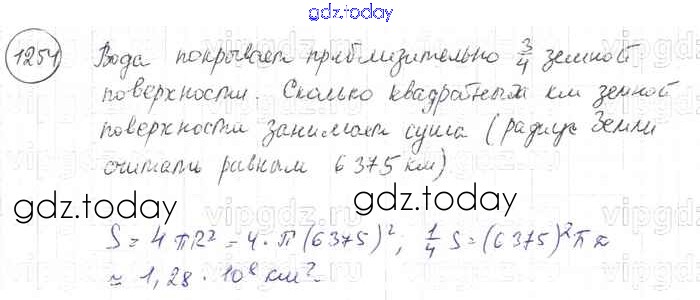 gdz.today
1254 Вода покрывает приблизительно 3/4 земной
поверхности. Сколько квадратных км земной
поверхности занимает суша (радиус Земли
считать равным 6375 км)
gdz.today
gdz.today
S = 4πR² = 4 · π (6375)²; 1/4 S = (6375)²π ≈
≈ 1,28 · 10⁸ км².